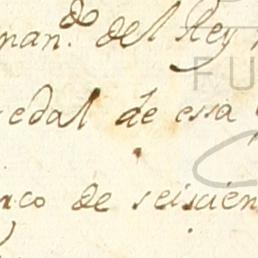 nan.do del Rey
edal de essa
nco de seiscien
FU